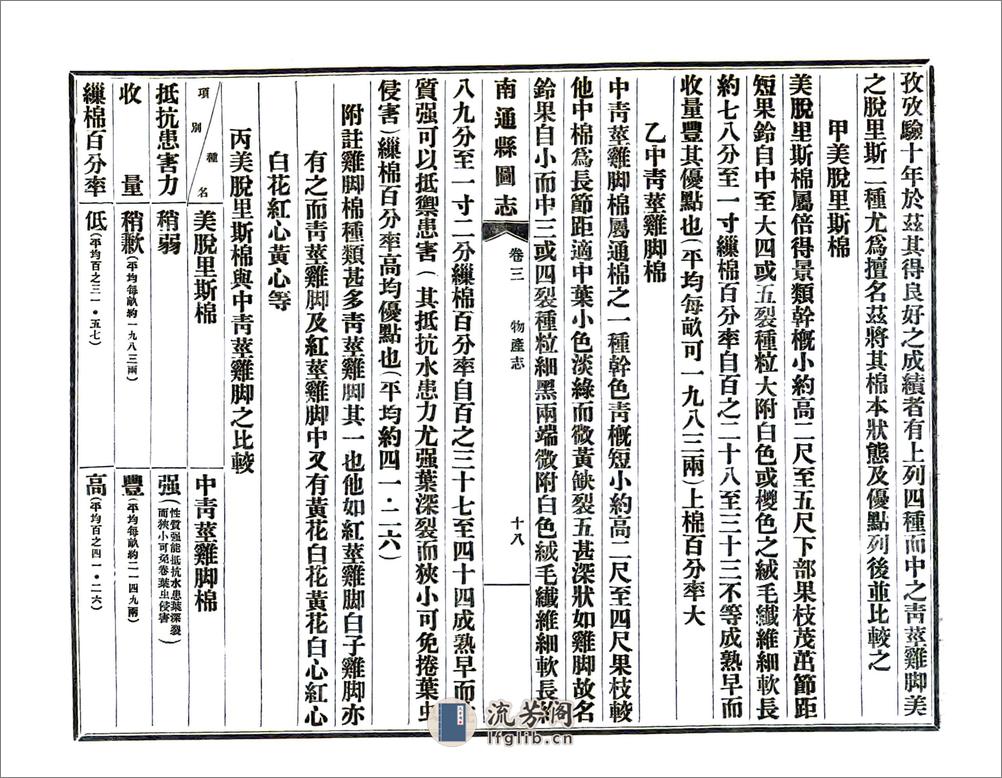 孜孜驗十年於茲其得良好之成績者有上列四種而中之靑莖雞脚美
之脫里斯二種尤爲擅名茲將其棉本狀態及優點列後並比較之
甲美脫里斯棉
美脫里斯棉屬倍得景類幹槪小約高二尺至五尺下部果枝茂茁節距
短果鈴自中至大四或五裂種粒大附白色或櫻色之絨毛纖維細軟長
約七八分至一寸繅棉百分率自百之二十八至三十三不等成熟早而
收量豐其優點也(平均每畝可一九八三兩)上棉百分率大
乙中靑莖雞脚棉
中靑莖雞脚棉屬通棉之一種幹色靑槪短小約高二尺至四尺果枝較
他中棉爲長節距適中葉小色淡綠而微黃缺裂五甚深狀如雞脚故名
鈴果自小而中三或四裂種粒細黑兩端微附白色絨毛纖維細軟長約
南通縣圖志
卷三
物產志
十八
八九分至一寸二分繅棉百分率自百之三十七至四十四成熟早而
質强可以抵禦患害(其抵抗水患力尤强葉深裂而狹小可免捲葉虫
侵害)繅棉百分率高均優點也(平均約四一·二六)
附註雞脚棉種類甚多靑莖雞脚其一也他如紅莖雞脚白子雞脚亦
有之而靑莖雞脚及紅莖雞脚中又有黃花白花黃花白心紅心
白花紅心黃心等
丙美脫里斯棉與中靑莖雞脚之比較
項別
種名
美脫里斯棉
中靑莖雞脚棉
抵抗患害力
稍弱
强(性質强能抵抗水患葉深裂而狹小可免卷葉虫侵害)
收量
稍歉(平均每畝約一九八三兩)
豐(平均每畝約二一四九兩)
繅棉百分率
低(平均百之三一·五七)
高(平均百之四一·二六)
流芳阁
lfglib.cn